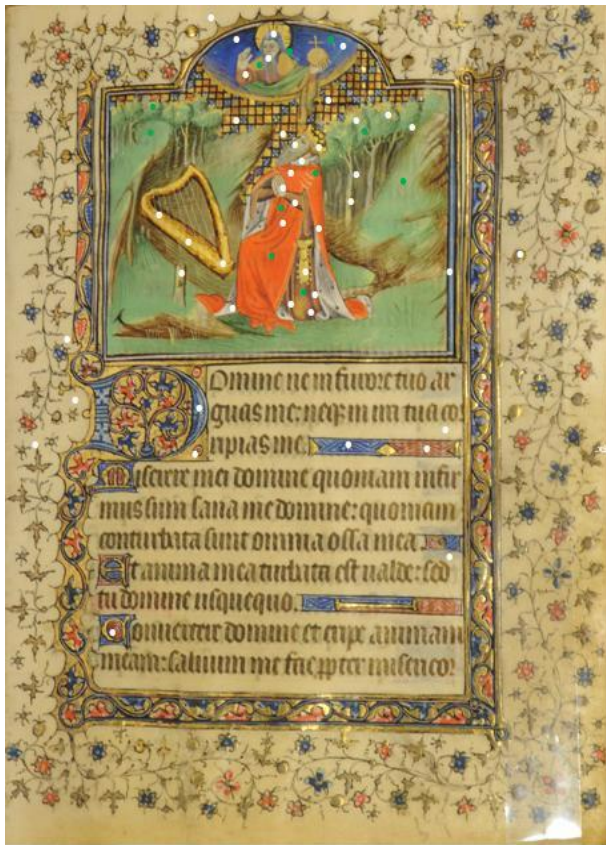 Domine ne in furore tuo ar
guas me: neq; in ira tua cor
ripias me.
Miserere mei domine quoniam infir
mus sum sana me domine: quoniam
conturbata sunt omnia ossa mea.
Et anima mea turbata est ualde: sed
tu domine usquequo.
Conuertere domine et eripe animam
meam: saluum me fac ppter misericor